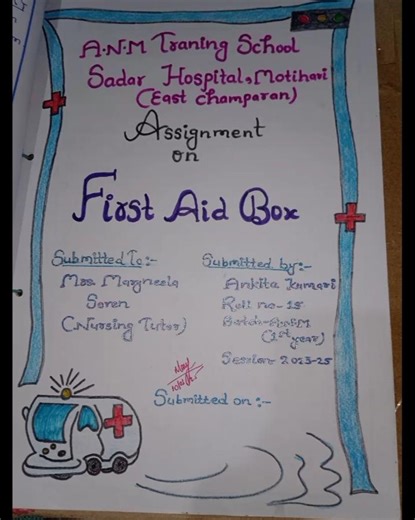 A.N.M Traning School
Sadar Hospital, Motihari
(East Champaran)
Assignment
on
First Aid Box
Submitted To:-
Mrs. Marg
Soren
(Nursing Tutor)
Submitted by:-
Ankita Kumari
Roll no-15
Batch-A.N.M
(1st year)
Session 2023-25
Submitted on:-